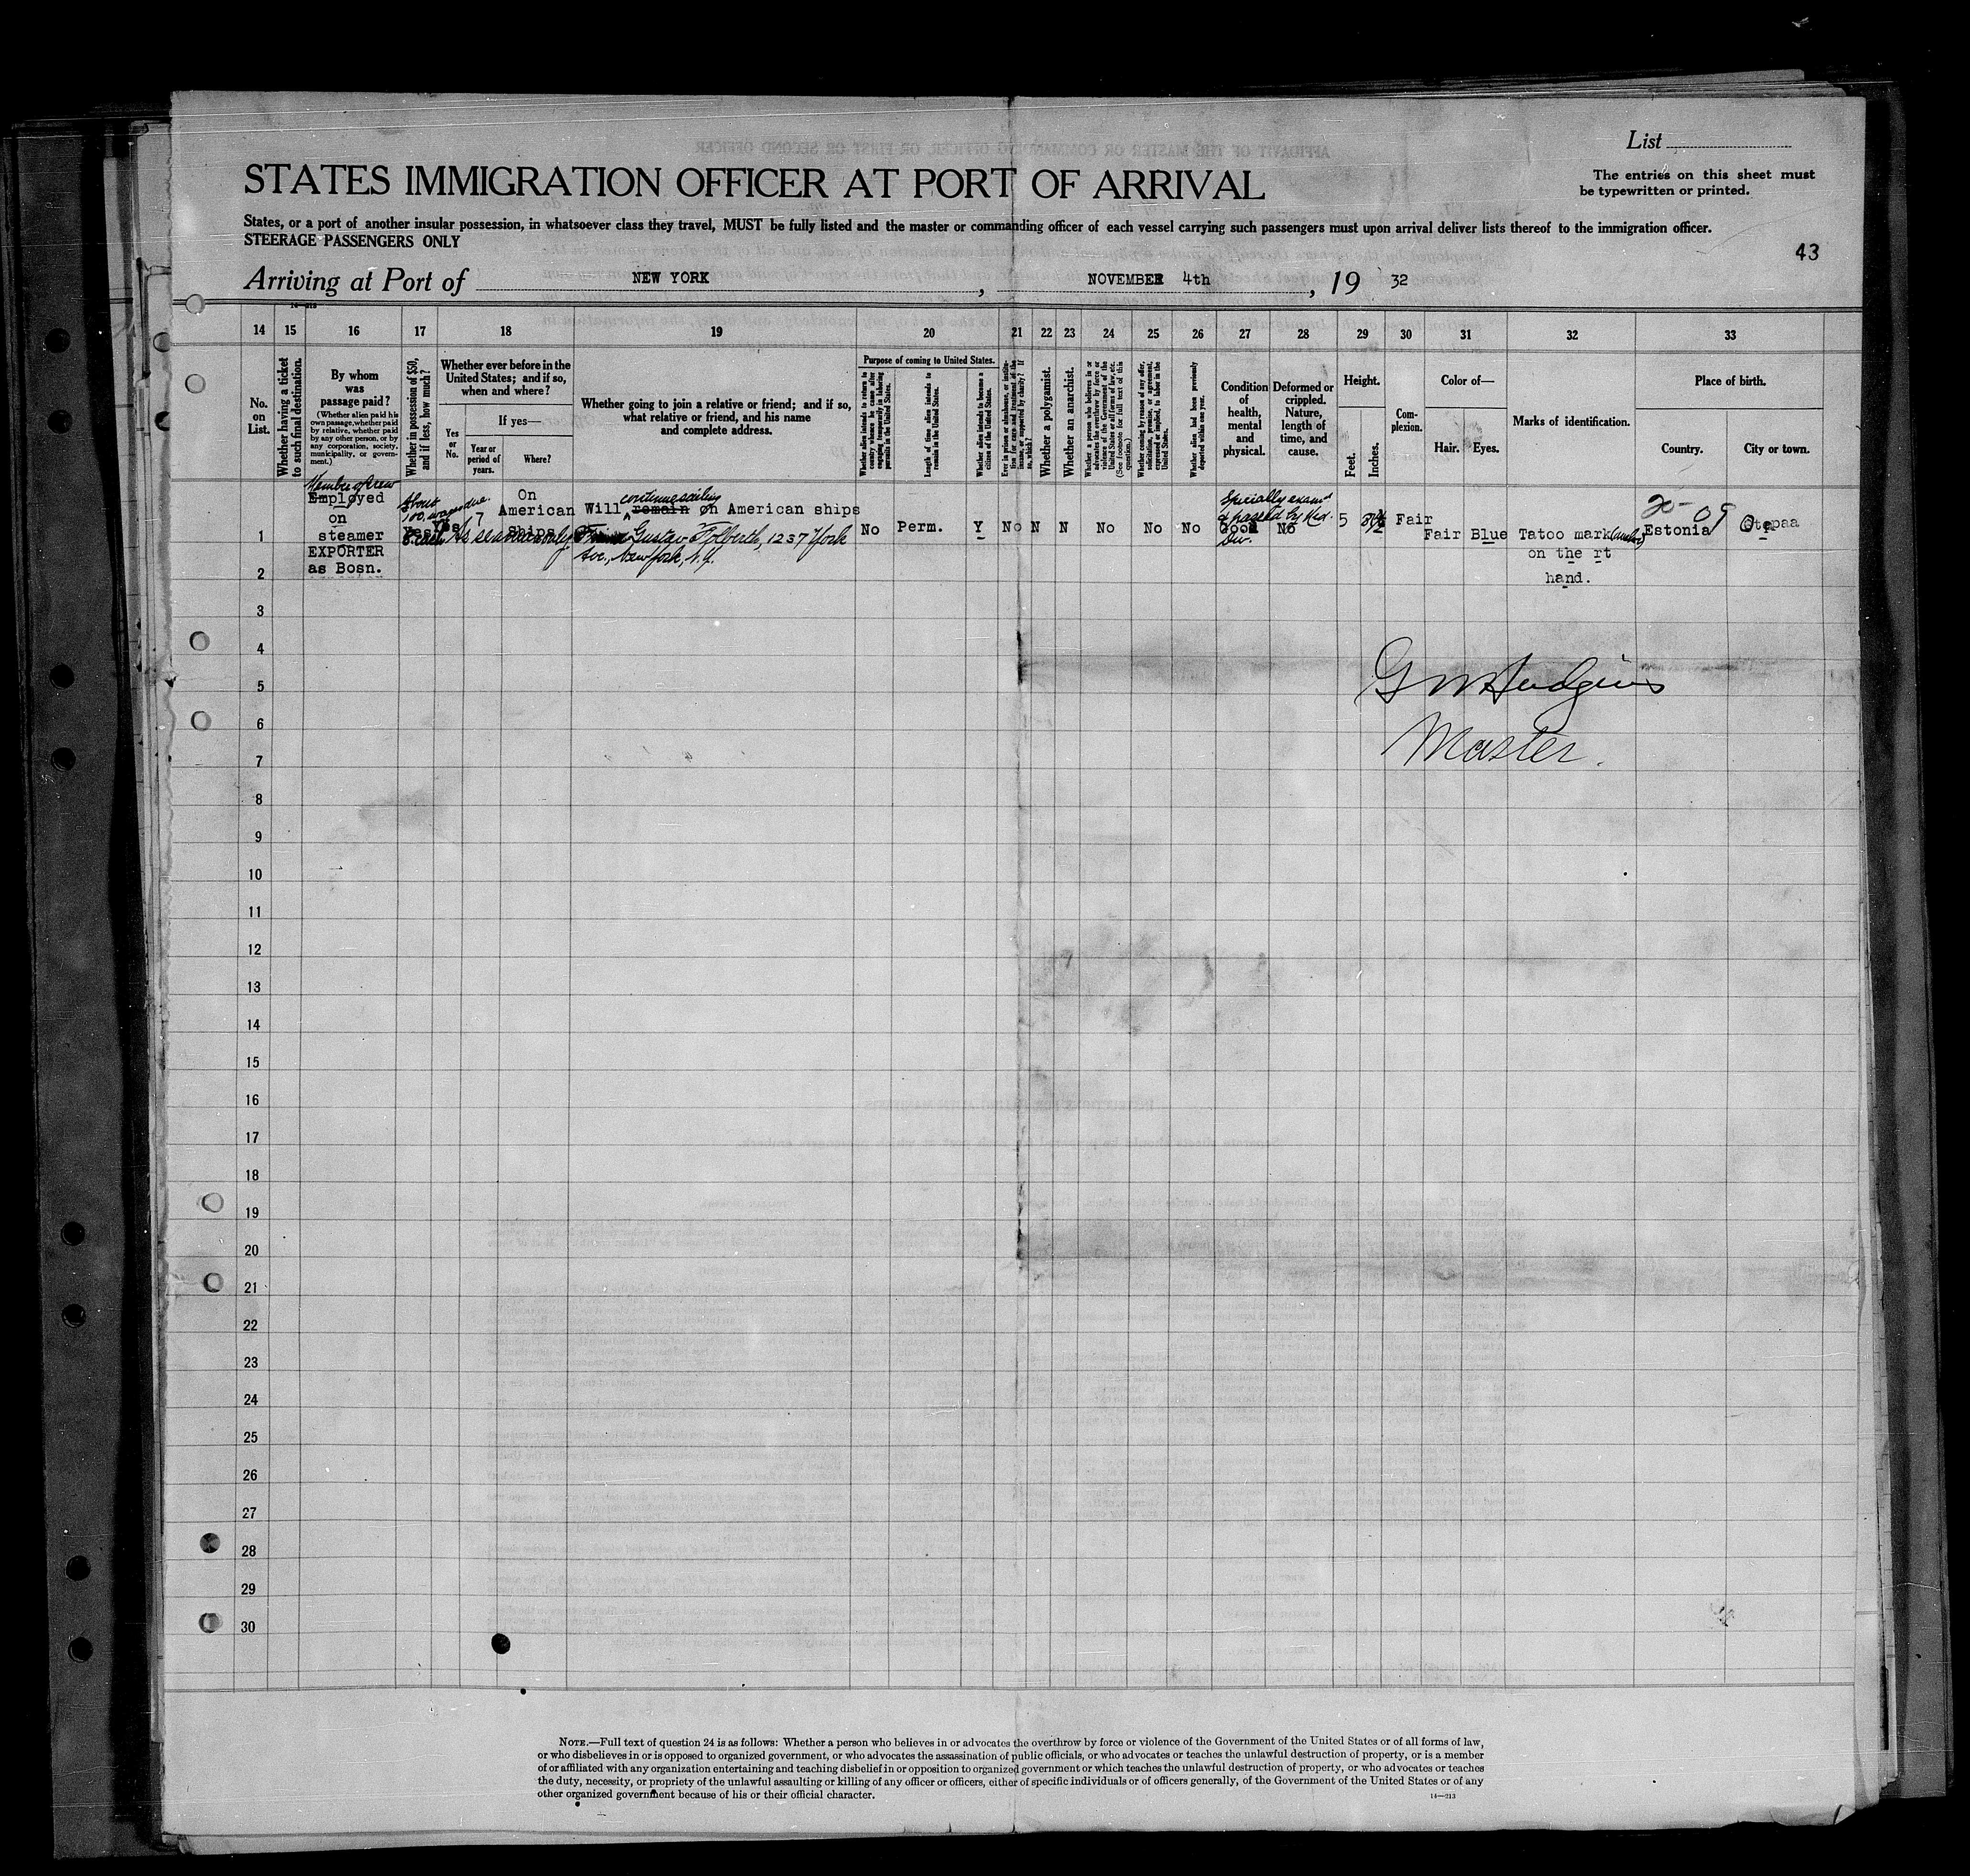 List
The entries on this sheet must
be typewritten or printed.
STATES IMMIGRATION OFFICER AT PORT OF ARRIVAL
States, or a port of another insular possession, in whatsoever class they travel, MUST be fully listed and the master or commanding officer of each vessel carrying such passengers must upon arrival deliver lists thereof to the immigration officer.
STEERAGE PASSENGERS ONLY
43
Arriving at Port of NEW YORK, NOVEMBER 4th, 19 32
14 15 16 17 18 19 20 21 22 23 24 25 26 27 28 29 30 31 32 33
No. on List.
Whether having a ticket to such final destination.
By whom was passage paid?
(Whether alien paid his own passage, whether paid by relative, whether paid by any other person, or by any corporation, society, municipality, or government.)
Whether in possession of $50, and if less, how much?
Whether ever before in the United States; and if so, when and where?
Yes or No.
If yes—
Year or period of years.
Where?
Whether going to join a relative or friend; and if so, what relative or friend, and his name and complete address.
Purpose of coming to United States.
Whether alien intends to return to country whence he came after engaging temporarily in laboring pursuits in the United States.
Length of time alien intends to remain in the United States.
Whether alien intends to become a citizen of the United States.
Whether a polygamist.
Whether an anarchist.
Whether coming by reason of any offer, solicitation, promise, or agreement, expressed or implied, to labor in the United States.
Whether alien had been previously deported within one year.
Condition of health, mental and physical.
Deformed or crippled. Nature, length of time, and cause.
Height.
Feet.
Inches.
Complexion.
Color of—
Hair.
Eyes.
Marks of identification.
Place of birth.
Country.
City or town.
Member of crew
Employed
on
steamer
EXPORTER
as Bosn.
About
100. wages due
Yes
7
On
American
Ships
As seaman only
Will continue sailing remain on American ships
Friend Gustav Tolberth, 1237 York
Ave., New York, N.Y.
No Perm. Y No N N No No No
Specially exam'd
& passed by Med.
Div.
Good
No
5
Fair
Fair Blue
Tatoo mark (anchor)
on the rt
hand.
20-09
Estonia
1
2
3
4
5
6
7
8
9
10
11
12
13
14
15
16
17
18
19
20
21
22
23
24
25
26
27
28
29
30
G W Hudgins
Master.
NOTE.—Full text of question 24 is as follows: Whether a person who believes in or advocates the overthrow by force or violence of the Government of the United States or of all forms of law,
or who disbelieves in or is opposed to organized government, or who advocates the assassination of public officials, or who advocates or teaches the unlawful destruction of property, or is a member
of or affiliated with any organization entertaining and teaching disbelief in or opposition to organized government or which teaches the unlawful destruction of property, or who advocates or teaches
the duty, necessity, or propriety of the unlawful assaulting or killing of any officer or officers, either of specific individuals or of officers generally, of the Government of the United States or of any
other organized government because of his or their official character.
14—213